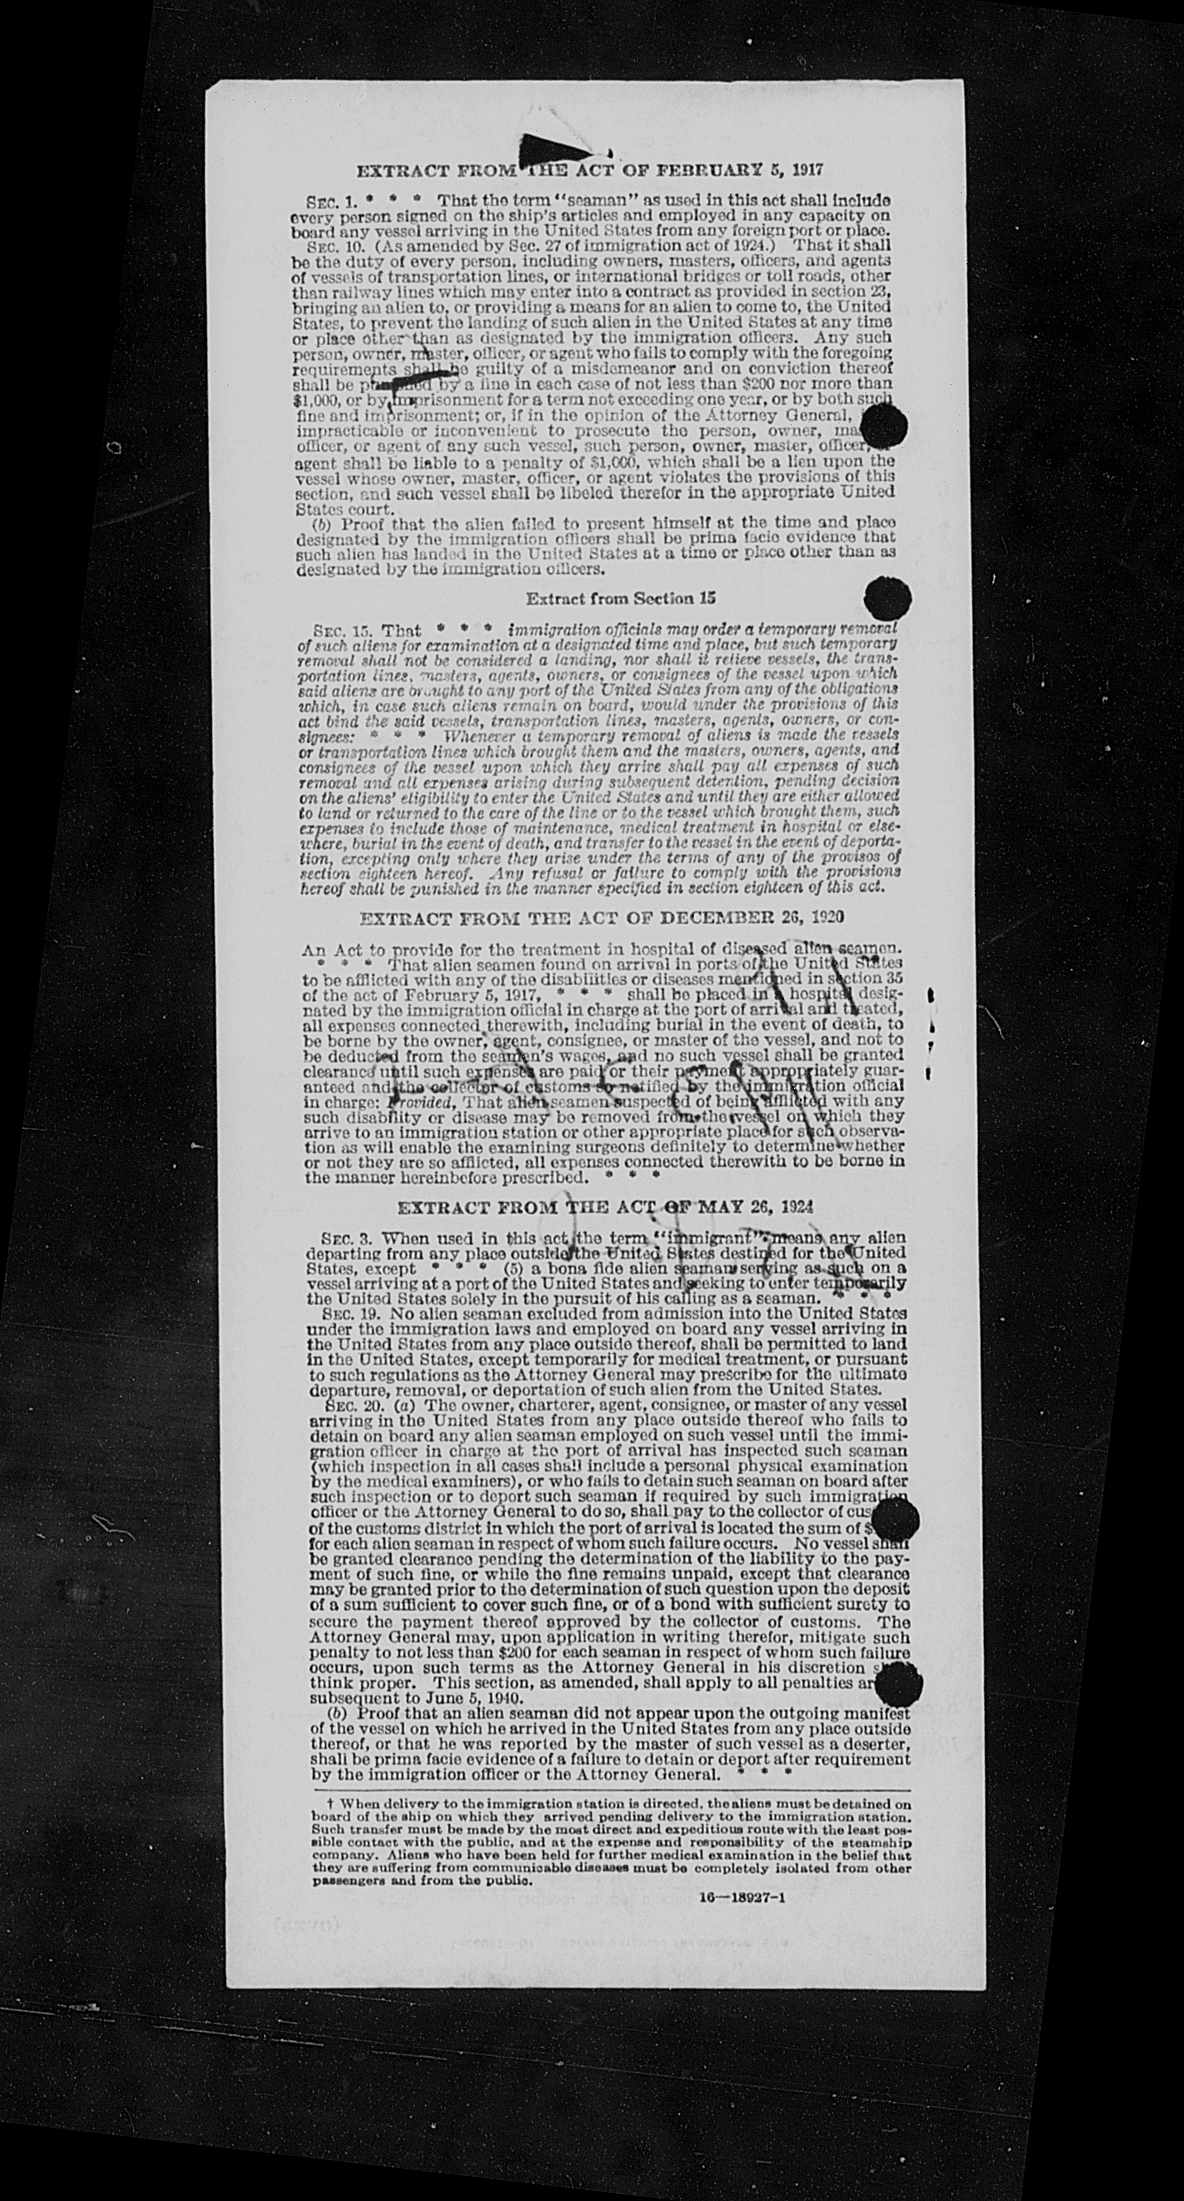 EXTRACT FROM THE ACT OF FEBRUARY 5, 1917
SEC. 1. * * * That the term "seaman" as used in this act shall include
every person signed on the ship's articles and employed in any capacity on
board any vessel arriving in the United States from any foreign port or place.
SEC. 10. (As amended by Sec. 27 of immigration act of 1924.) That it shall
be the duty of every person, including owners, masters, officers, and agents
of vessels of transportation lines, or international bridges or toll roads, other
than railway lines which may enter into a contract as provided in section 23,
bringing an alien to, or providing a means for an alien to come to, the United
States, to prevent the landing of such alien in the United States at any time
or place other than as designated by the immigration officers. Any such
person, owner, master, officer, or agent who fails to comply with the foregoing
requirements shall be guilty of a misdemeanor and on conviction thereof
shall be by a fine in each case of not less than $200 nor more than
$1,000, or by imprisonment for a term not exceeding one year, or by both such
fine and imprisonment; or, if in the opinion of the Attorney General,
impracticable or inconvenient to prosecute the person, owner,
officer, or agent of any such vessel, such person, owner, master, officer,
agent shall be liable to a penalty of $1,000, which shall be a lien upon the
vessel whose owner, master, officer, or agent violates the provisions of this
section, and such vessel shall be libeled therefor in the appropriate United
States court.
(b) Proof that the alien failed to present himself at the time and place
designated by the immigration officers shall be prima facie evidence that
such alien has landed in the United States at a time or place other than as
designated by the immigration officers.
Extract from Section 15
SEC. 15. That * * * immigration officials may order a temporary removal
of such aliens for examination at a designated time and place, but such temporary
removal shall not be considered a landing, nor shall it relieve vessels, the trans-
portation lines, masters, agents, owners, or consignees of the vessel upon which
said aliens are brought to any port of the United States from any of the obligations
which, in case such aliens remain on board, would under the provisions of this
act bind the said vessels, transportation lines, masters, agents, owners, or con-
signees: * * * Whenever a temporary removal of aliens is made the vessels
or transportation lines which brought them and the masters, owners, agents, and
consignees of the vessel upon which they arrive shall pay all expenses of such
removal and all expenses arising during subsequent detention, pending decision
on the aliens' eligibility to enter the United States and until they are either allowed
to land or returned to the care of the line or to the vessel which brought them, such
expenses to include those of maintenance, medical treatment in hospital or else-
where, burial in the event of death, and transfer to the vessel in the event of deporta-
tion, excepting only where they arise under the terms of any of the provisos of
section eighteen hereof. Any refusal or failure to comply with the provisions
hereof shall be punished in the manner specified in section eighteen of this act.
EXTRACT FROM THE ACT OF DECEMBER 26, 1920
An Act to provide for the treatment in hospital of diseased alien seamen.
* * * That alien seamen found on arrival in ports of the United States
to be afflicted with any of the disabilities or diseases mentioned in section 35
of the act of February 5, 1917, * * * shall be placed in a hospital desig-
nated by the immigration official in charge at the port of arrival and treated,
all expenses connected therewith, including burial in the event of death, to
be borne by the owner, agent, consignee, or master of the vessel, and not to
be deducted from the seamen's wages, and no such vessel shall be granted
clearance until such expenses are paid or their payment appropriately guar-
anteed and the collector of customs so notified by the immigration official
in charge: Provided, That alien seamen suspected of being afflicted with any
such disability or disease may be removed from the vessel on which they
arrive to an immigration station or other appropriate place for such observa-
tion as will enable the examining surgeons definitely to determine whether
or not they are so afflicted, all expenses connected therewith to be borne in
the manner hereinbefore prescribed. * * *
EXTRACT FROM THE ACT OF MAY 26, 1924
SEC. 3. When used in this act the term "immigrant" means any alien
departing from any place outside the United States destined for the United
States, except * * * (5) a bona fide alien seaman serving as such on a
vessel arriving at a port of the United States and seeking to enter temporarily
the United States solely in the pursuit of his calling as a seaman. * * *
SEC. 19. No alien seaman excluded from admission into the United States
under the immigration laws and employed on board any vessel arriving in
the United States from any place outside thereof, shall be permitted to land
in the United States, except temporarily for medical treatment, or pursuant
to such regulations as the Attorney General may prescribe for the ultimate
departure, removal, or deportation of such alien from the United States.
SEC. 20. (a) The owner, charterer, agent, consignee, or master of any vessel
arriving in the United States from any place outside thereof who fails to
detain on board any alien seaman employed on such vessel until the immi-
gration officer in charge at the port of arrival has inspected such seaman
(which inspection in all cases shall include a personal physical examination
by the medical examiners), or who fails to detain such seaman on board after
such inspection or to deport such seaman if required by such immigration
officer or the Attorney General to do so, shall pay to the collector of
of the customs district in which the port of arrival is located the sum of
for each alien seaman in respect of whom such failure occurs. No vessel shall
be granted clearance pending the determination of the liability to the pay-
ment of such fine, or while the fine remains unpaid, except that clearance
may be granted prior to the determination of such question upon the deposit
of a sum sufficient to cover such fine, or of a bond with sufficient surety to
secure the payment thereof approved by the collector of customs. The
Attorney General may, upon application in writing therefor, mitigate such
penalty to not less than $200 for each seaman in respect of whom such failure
occurs, upon such terms as the Attorney General in his discretion
think proper. This section, as amended, shall apply to all penalties
subsequent to June 5, 1940.
(b) Proof that an alien seaman did not appear upon the outgoing manifest
of the vessel on which he arrived in the United States from any place outside
thereof, or that he was reported by the master of such vessel as a deserter,
shall be prima facie evidence of a failure to detain or deport after requirement
by the immigration officer or the Attorney General. * * *
† When delivery to the immigration station is directed, the aliens must be detained on
board of the ship on which they arrived pending delivery to the immigration station.
Such transfer must be made by the most direct and expeditious route with the least pos-
sible contact with the public, and at the expense and responsibility of the steamship
company. Aliens who have been held for further medical examination in the belief that
they are suffering from communicable diseases must be completely isolated from other
passengers and from the public.
16—18927-1